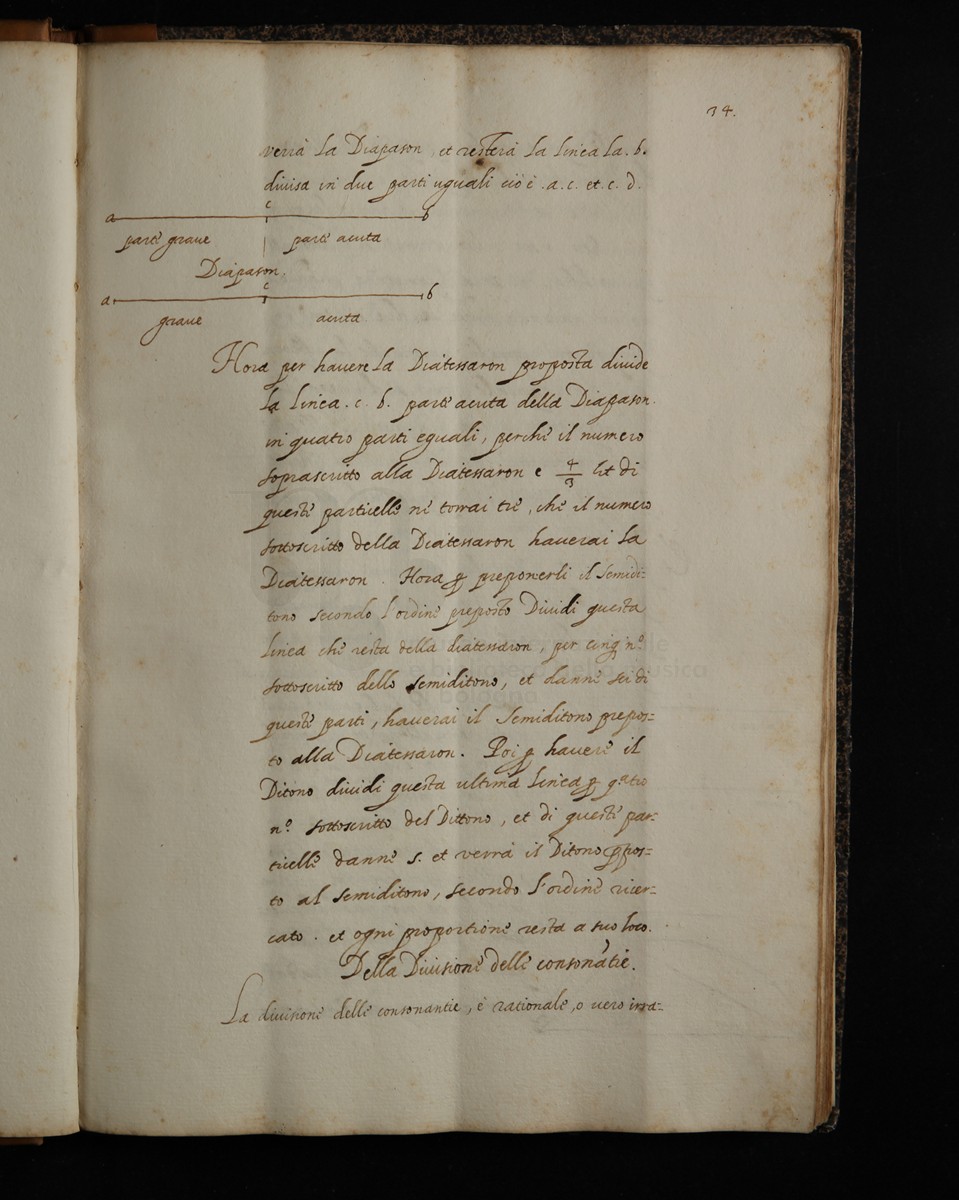 34.
verrà la Diapason, et resterà la linea la. b.
diuisa in due parti uguali cioè .a. c. et. c. d.
a c b
parte graue parte acuta
Diapason,
a c b
graue acuta
Hora per hauere la Diatessaron proposta diuide
la linea. c. b. parte acuta della Diapason.
in quatro parti eguali, perchè il numero
soprascritto alla Diatessaron e 4/3 Et di
queste particelle nè torrai trè, chè il numero
sottoscritto della Diatessaron hauerai la
Diatessaron. Hora ꝑ preponerli il Semidi-
tono secondo l'ordine preposto Diuidi questa
linea chè resta della diatessaron, per cinq nº
sottoscritto dello semiditono, et danne sei di
queste parti, hauerai il Semiditono prepos=
to alla Diatessaron. Poi ꝑ hauere il
Ditono diuidi questa ultima linea ꝑ q.atro
nº sottoscritto del Dittono, et di queste par-
ticelle danne 5. et verrà il Ditono ꝓpos=
to al semiditono, secondo l'ordine ricer-
cato. et ogni proportione resta a suo loco.
Della Diuisione delle consonãtie.
La diuisione delle consonantie, è rationale, o vero irra-